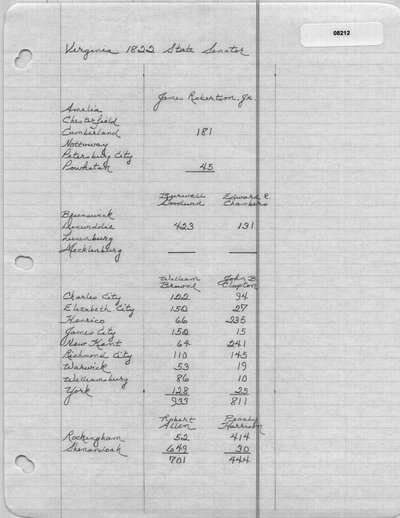 08212
Virginia 1822 State Senator
James Robertson, Jr.
Amelia
Chesterfield
Cumberland 181
Nottoway
Petersburg City
Powhatan 45
Burwell Edward R.
Goodwin Chambers
Brunswick
Dinwiddie 423 131
Lunenburg
Mecklenburg
William John B.
Browne Clopton
Charles City 122 94
Elizabeth City 150 27
Henrico 66 235
James City 150 15
New Kent 64 241
Richmond City 110 145
Warwick 53 19
Williamsburg 86 10
York 128 25
933 811
Robert Peachy
Allen Harrison
Rockingham 52 414
Shenandoah 649 30
701 444